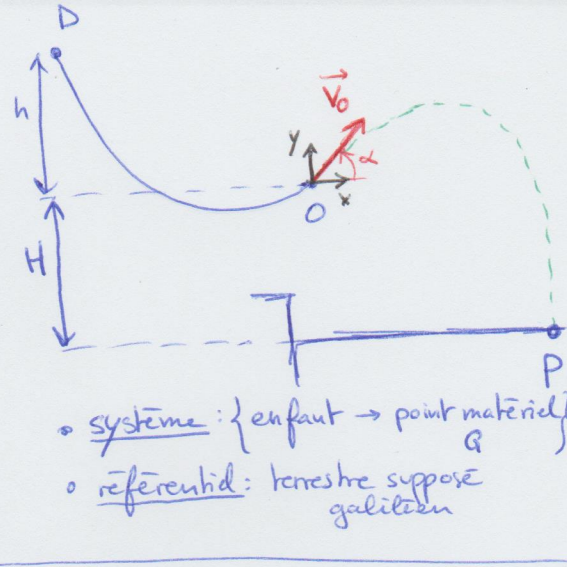 D
h
V₀
y
α
x
O
H
P
• système : { enfant → point matériel }
G
• référentiel : terrestre supposé
galiléen